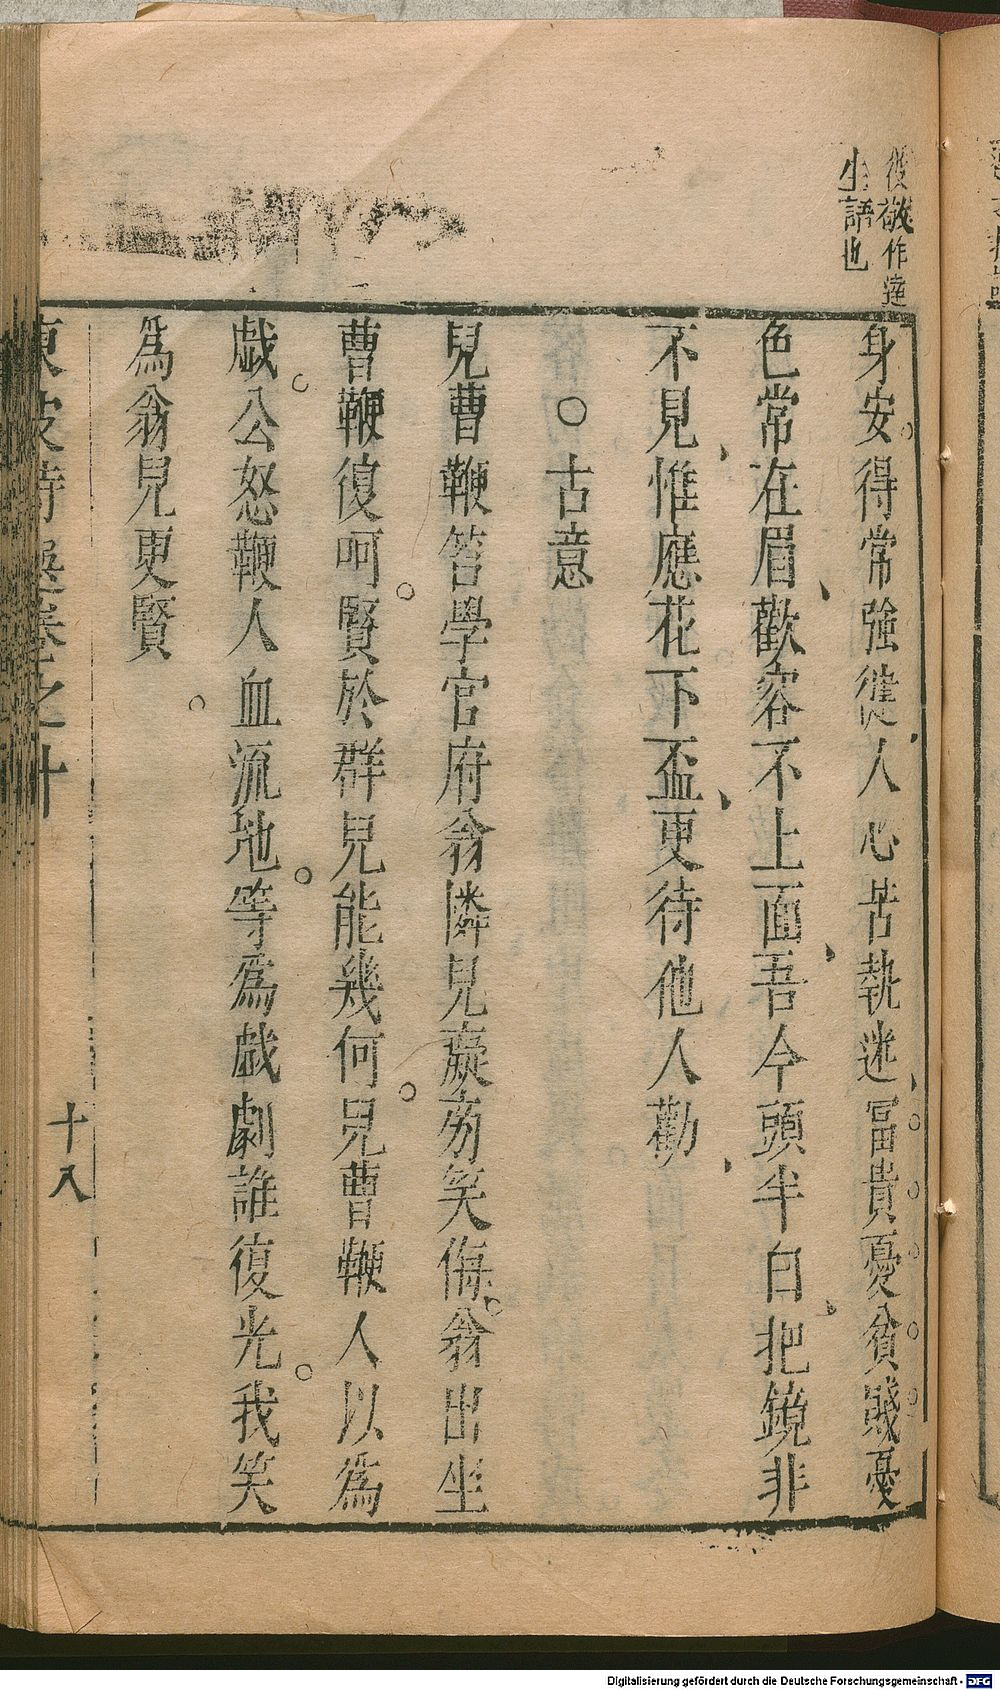 後敬作達
生語也
身安得常強從人心苦執迷冨貴憂貧賤憂
色常在眉歡容不上面吾今頭半白把鏡非
不見惟應花下盃更待他人勸
○古意
兒曹鞭笞學官府翁憐兒癡旁笑侮翁出坐
曹鞭復呵賢於群兒能幾何兒曹鞭人以為
戱公怒鞭人血流地等為戱劇誰復光我笑
為翁兒更賢
東坡詩選卷之十
十八
Digitalisierung gefördert durch die Deutsche Forschungsgemeinschaft - DFG